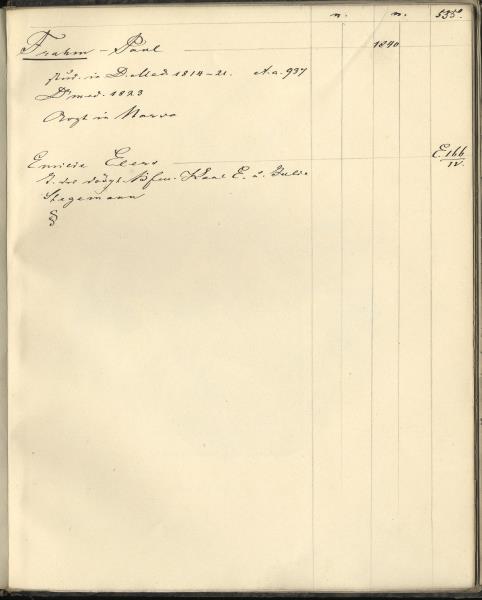 n. n. 535.
Frahm - Paul 1840
stud. in D. Med. 1814-21. A.a. 937
Dr med. 1823
Arzt in Narva
Emilie Elers E. 166
T. des dörpt. Karl E. u. Julie IV.
Stegemann
§